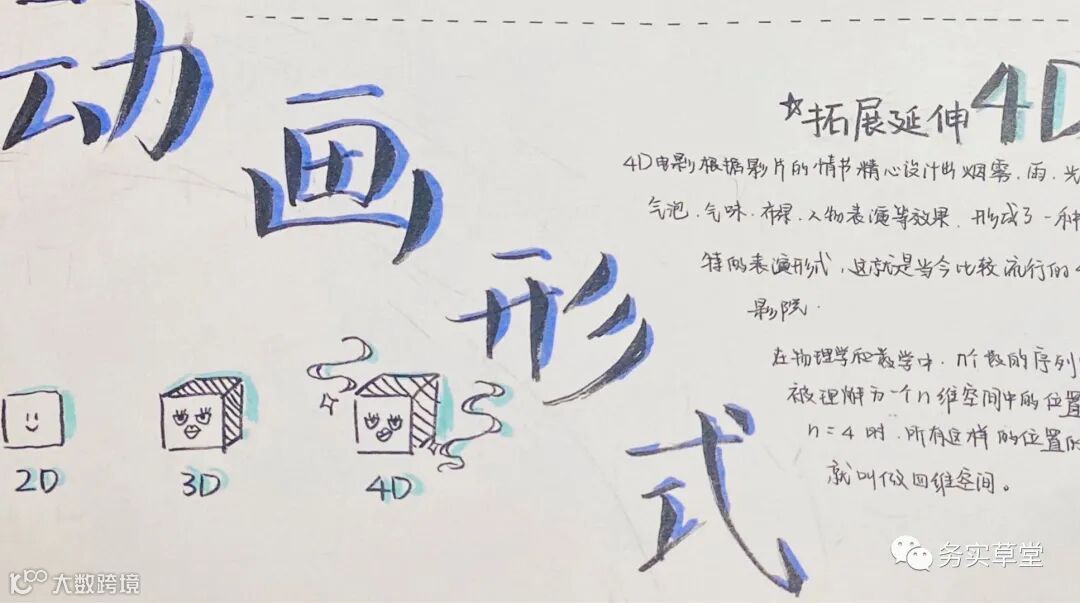 动画形式
☆拓展延伸 4D
4D电影根据影片的情节精心设计出烟雾、雨、光
气泡、气味、布景、人物表演等效果，形成了一种
特的表演形式，这就是当今比较流行的4
影院.
在物理学和数学中，n个数的序列
被理解为一个n维空间中的位置
n=4时，所有这样的位置的
就叫做四维空间。
2D
3D
4D
务实草堂
大数跨境